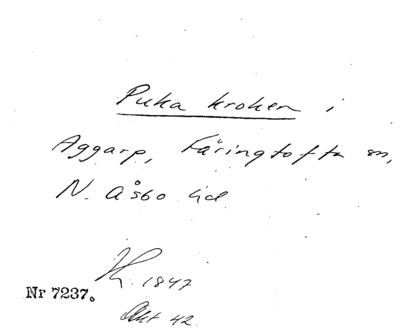 Puka kroken i
Aggarp, Färingtofta sn,
N. Åsbo hd
1847
Nr 7237.
Akt 42.